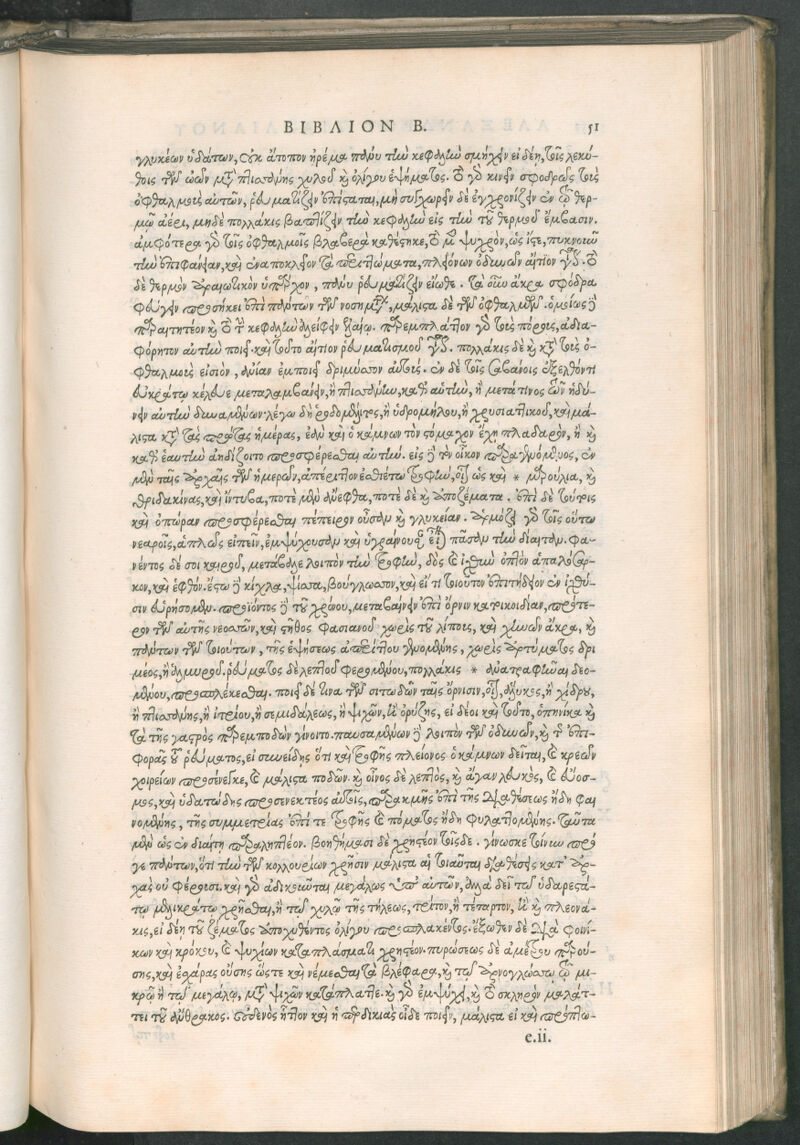 ΒΙΒΛΙΟΝ Β. 51
γλυκέων ὑδάτων, οὐκ ἄτοπον ἠρέμα πάνυ τὴν κεφαλὴν σμήχειν εἰ δέη, τοῖς λεκύ-
θοις τῶν ὠῶν μετὰ πτισάνης χυλοῦ καὶ ὀλίγου ἑψήματος. τὸ γὰρ κινεῖν σφοδρῶς τοὺς
ὀφθαλμοὺς αὐτῶν, ῥευματίζειν ἐπίσταται, μὴ συγχωρεῖν δὲ ἐγχρονίζειν ἐν τῷ θερ-
μῷ ἀέρι, μηδὲ πολλάκις βαπτίζειν τὴν κεφαλὴν εἰς τὴν τοῦ θερμοῦ ἔμβασιν.
ἀμφότερα γὰρ τοῖς ὀφθαλμοῖς βλαβερὰ καθέστηκε, τὸ μὲν ψυχρὸν, ὡς ἴστε, πυκνοῦν
τὴν ἐπιφάνειαν, καὶ ἐναποκλεῖον τὰ περιττώματα, πλειόνων ὀδυνῶν αἴτιον γίνεται. τὸ
δὲ θερμὸν ἀραιωτικὸν ὑπάρχον, πάνυ ῥευματίζειν εἴωθε. τὰ οὖν ἄκρα σφόδρα
φεύγειν προσήκει ἐπὶ πάντων τῶν νοσημάτων, μάλιστα δὲ τῶν ὀφθαλμῶν. ὁμοίως δὲ
παραιτητέον καὶ τὸ τὴν κεφαλὴν ἀλείφειν ἐλαίῳ. παρεμπλάττον γὰρ τοὺς πόρους, ἀδια-
φόρητον αὐτὴν ποιεῖ. καὶ τοῦτο αἴτιον ῥευματισμοῦ γίνεται. πολλάκις δὲ καὶ κατὰ τοὺς ὀ-
φθαλμοὺς εἰσιὸν, ἀνίαν ἐμποιεῖ δριμύσσον αὐτούς. ἐν δὲ τοῖς λουτροῖς ἐξελθόντι
εὐκράτῳ κέλευε μεταλαμβάνειν, ἢ πτισάνην, καθ' αὑτὴν, ἢ μετά τινος τῶν ἡδύ-
νειν αὐτὴν δυναμένων. λέγω δὴ ῥοδομήλιτος, ἢ ὑδρομήλου, ἢ χρυσιατικοῦ, καὶ μά-
λιστα κατὰ τὰς πρώτας ἡμέρας, ἐὰν καὶ ὁ κάμνων τὸν στόμαχον ἔχῃ πλαδαρὸν, ἢ καὶ
καθ' ἑαυτὴν ἀηδίζοιτο προσφέρεσθαι αὐτήν. εἰς δὲ τὸν οἶκον παραγενόμενος, ἐν
μὲν ταῖς ἀρχαῖς τῶν ἡμερῶν, ἀπέριττον ἐσθιέτω τροφὴν, οἷον ὡς καὶ * μαρούλια, καὶ
θριδακίνας, καὶ ἴντυβα, ποτὲ μὲν ἄνεφθα, ποτὲ δὲ καὶ ἀποζέματα. ἐπὶ δὲ τούτοις
καὶ ὀπώραν προσφέρεσθαι πέπειρον οὖσαν καὶ γλυκεῖαν. ἁρμόζει γὰρ τοῖς οὕτω
νεαροῖς, ἁπλῶς εἰπεῖν, ἐμψύχουσαν καὶ ὑγραίνουσαν εἶναι πᾶσαν τὴν δίαιταν. φα-
νέντος δέ σοι καιροῦ, μετάβαλε λοιπὸν τὴν τροφὴν, δὸς καὶ ἰχθὺν ὀπτὸν ἁπαλόσαρ-
κον, καὶ ἑφθόν. ἔστω δὲ κίχλα, ψίατα, βούγλωσσον, καὶ εἴ τι τοιοῦτον ἐπιτήδειον ἐν ἰχθύ-
σιν εὑρήσομεν. προϊόντος δὲ τοῦ χρόνου, μεταβαίνειν ἐπὶ ὄρνιν κατοικίδιαν, πρότε-
ρον τῶν αὐτῆς νεοσσῶν, καὶ στῆθος φασιανοῦ χωρὶς τοῦ λίπους, καὶ χηνῶν ἄκρα, καὶ
πάντων τῶν τοιούτων, τῆς ἑψήσεως ἀπερίττου γενομένης, χωρὶς ἀρτύματος δρι
μέος, ἢ ἁλμυροῦ. ῥεύματος δὲ λεπτοῦ φερομένου, πολλάκις * ἀνατραφῆναι δεο-
μένου, προσπλέκεσθαι. ποιεῖ δέ τινα τῶν σιτωδῶν ταῖς ὄρνισιν, οἷον, ἄλυκος, ἢ χίδρου,
ἢ πτισάνης, ἢ ἰτρίου, ἢ σεμιδάλεως, ἢ ψιχῶν, ἢ ὀρύζης, εἰ δέοι καὶ τοῦτο, ὁπηνίκα καὶ
τὰ τῆς γαστρὸς παρεμποδὼν γίνοιτο. παυσαμένων δὲ λοιπὸν τῶν ὀδυνῶν, καὶ τῆς ἐπι-
φορᾶς τοῦ ῥεύματος, εἰ συνείδης ὅτι καὶ τροφῆς πλείονος ὁ κάμνων δεῖται, καὶ κρεῶν
χοιρείων προσένεγκε, καὶ μάλιστα ποδῶν. καὶ οἶνος δὲ λεπτὸς, καὶ ἄγαν λευκὸς, καὶ εὔοσ-
μος, καὶ ὑδατώδης προσενεκτέος αὐτοῖς, παρακμῆς ἐπὶ τῆς διαθέσεως ἤδη φαι
νομένης, τῆς συμμετρίας ἐπί τε τροφῆς καὶ πόματος ἤδη φυλαττομένης. ταῦτα
μὲν ὡς ἐν διαίτῃ παραληπτέον. βοηθήμασι δὲ χρηστέον τοῖσδε. γίνωσκε τοίνυν πρό
γε πάντων, ὅτι τὴν τῶν κολλουρίων χρῆσιν μάλιστα αἱ τοιαῦται διαθέσεις κατ' ἀρ-
χὰς οὐ φέρουσι. καὶ γὰρ ἀδικοῦνται μεγάλως ὑπ' αὐτῶν, ἀλλὰ δεῖ τῷ ὑδαρεστά-
τῳ μελικράτῳ χρῆσθαι, ἢ τῷ χυλῷ τῆς τήλεως, τρίτον, ἢ τέταρτον, ἢ καὶ πλεονά-
κις, εἰ δέῃ τοῦ ζέματος ἀποχυθέντος ὀλίγου προσπλακέντος. ἔξωθεν δὲ διὰ φοινί-
κων καὶ κρόκου, καὶ ψυχίων καταπλάσματι χρηστέον. πυρώσεως δὲ ἀμέτρου παρού-
σης, καὶ ἐσχάρας οὔσης ὥστε καὶ νέμεσθαι τὰ βλέφαρα, καὶ τῷ ἀρνογλώσσῳ τῷ μι-
κρῷ ἢ τῷ μεγάλῳ, μετὰ ψιχῶν κατάπλαττε. καὶ γὰρ ἐμψύχει, καὶ τὸ σκληρὸν μαλάτ-
τει τοῦ ἄνθρακος. οὐδενὸς ἧττον καὶ ἡ περδικιὰς οἶδε ποιεῖν, μάλιστα εἰ καὶ πρόπλω-
e.ii.